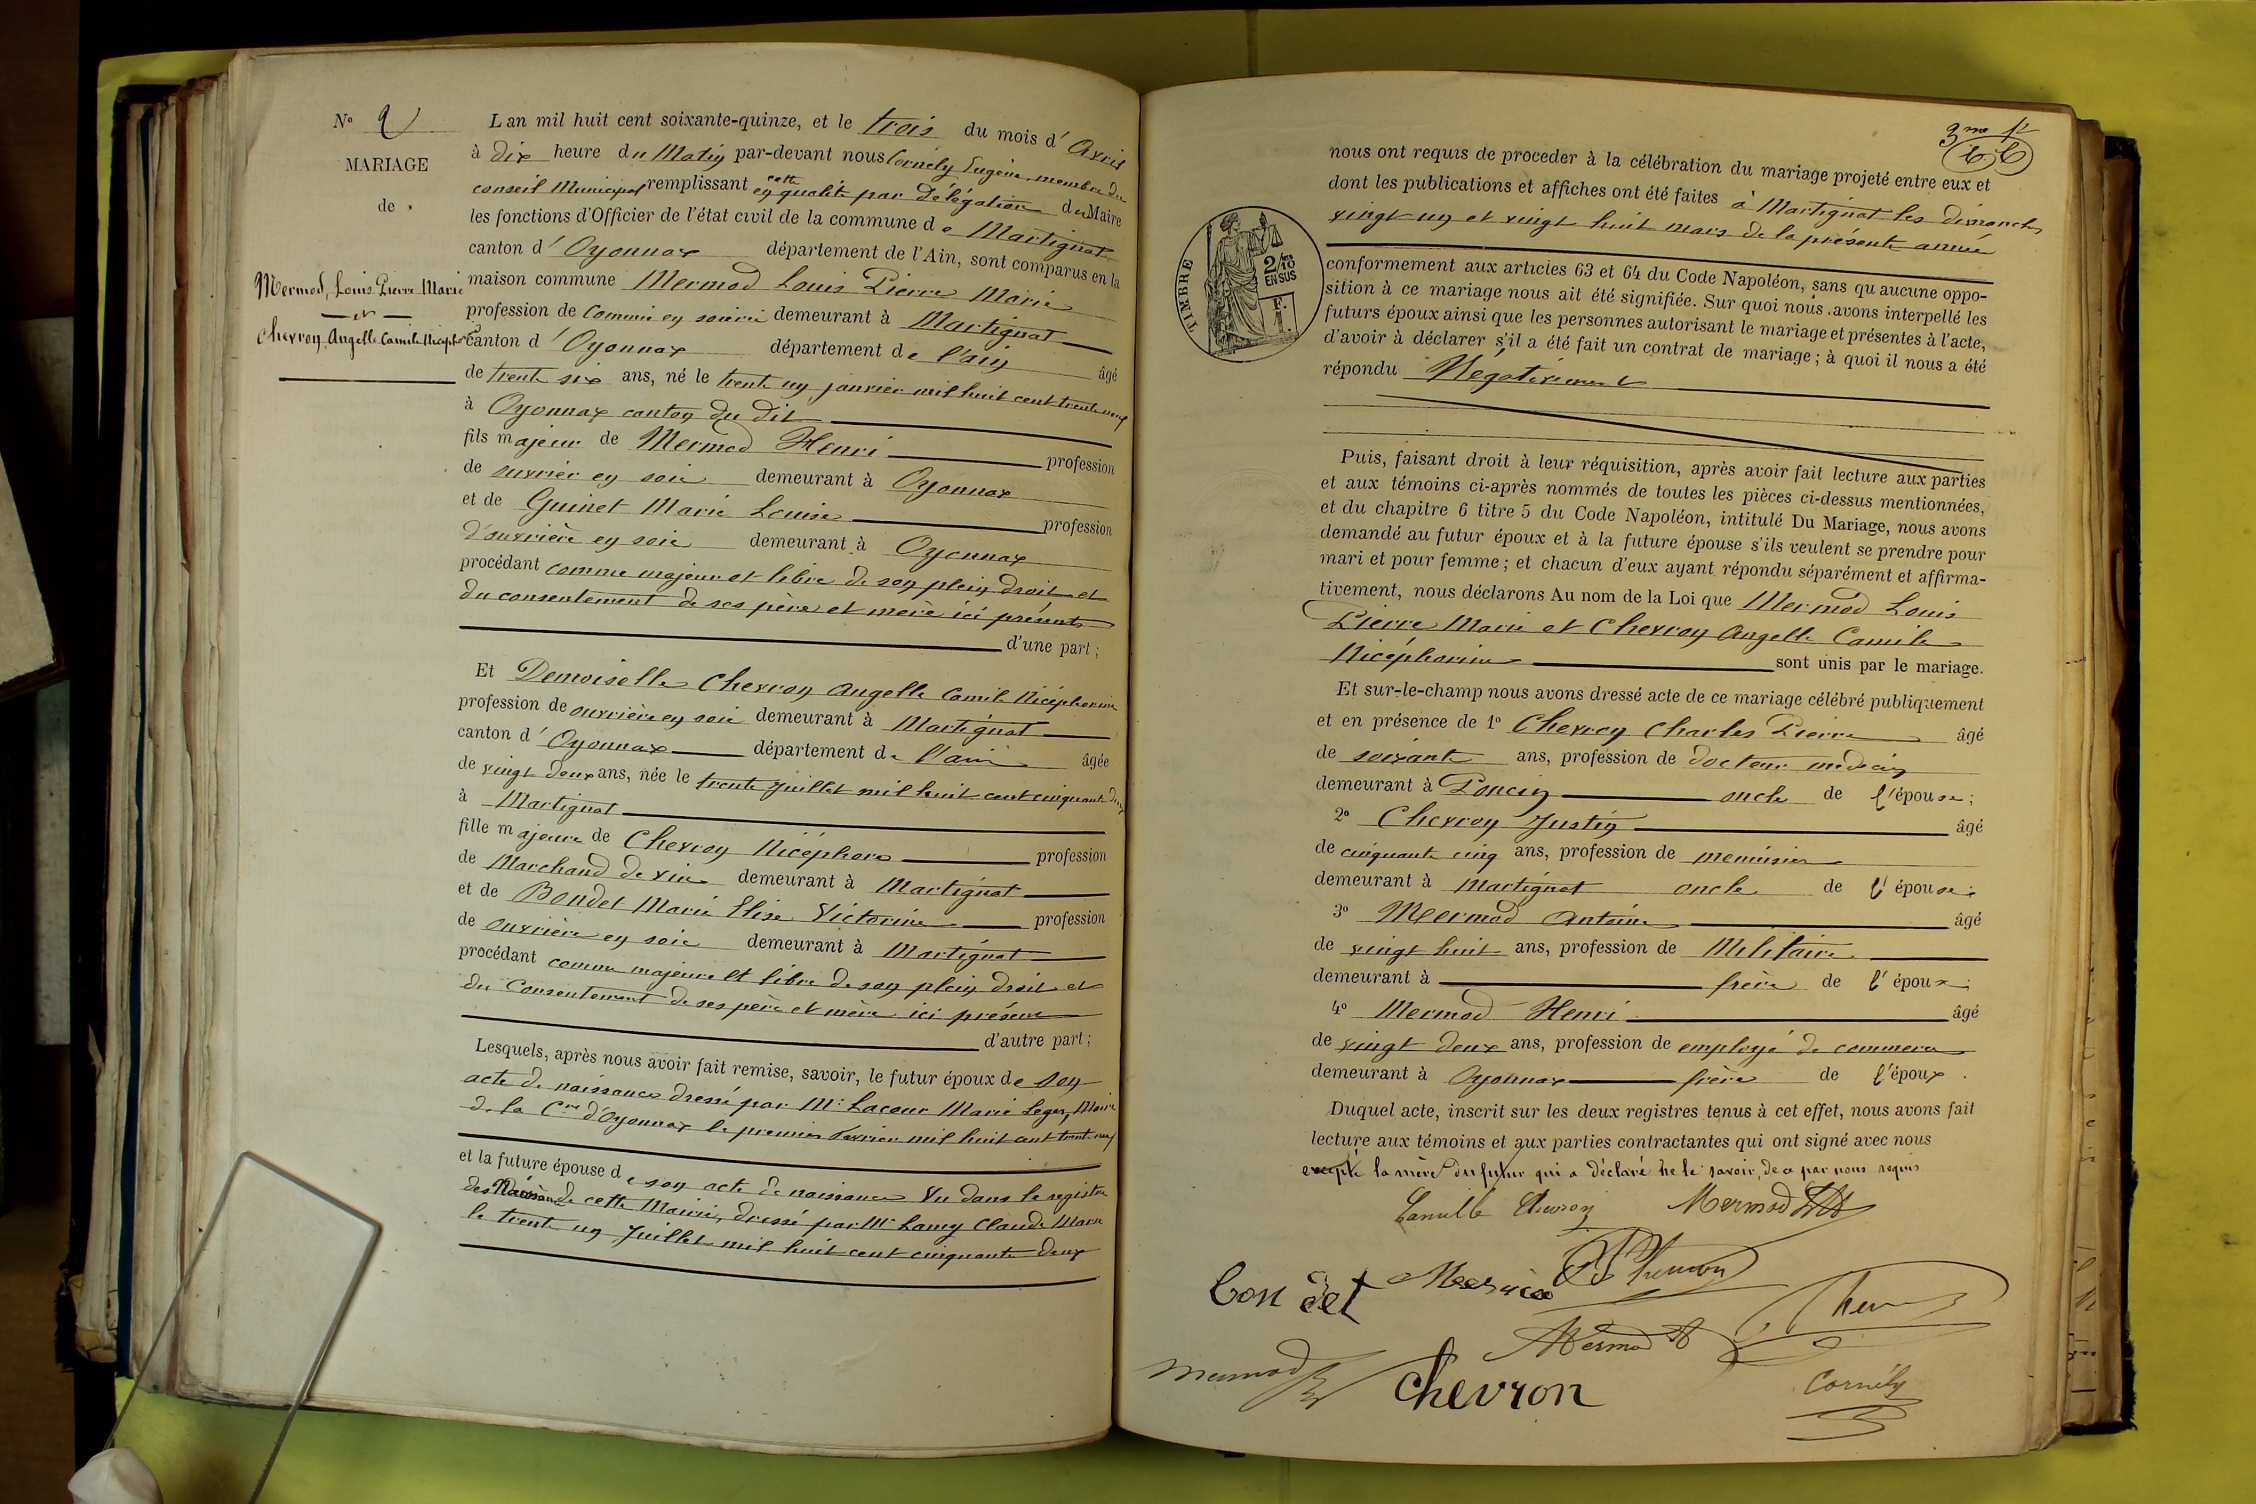 N° 2
MARIAGE
de
Mermod, Louis Pierre Marie
et
Chevron Angelle Camile Niceph
L an mil huit cent soixante-quinze, et le trois du mois d' Avril
à dix heure du Matin par-devant nous Cornély Eugène, membre du
conseil Municipal remplissant cette en qualité par délégation du Maire
les fonctions d'Officier de l'état civil de la commune de Martignat
canton d' Oyonnax département de l'Ain, sont comparus en la
maison commune Mermod Louis Pierre Marie
profession de Commis en soierie demeurant à Martignat
canton d' Oyonnax département de l'ain âgé
de trente six ans, né le trente un janvier mil huit cent trente neuf
à Oyonnax canton du dit
fils majeur de Mermod Henri profession
de ouvrier en soie demeurant à Oyonnax
et de Guinet Marie Louise profession
d'ouvrière en soie demeurant à Oyonnax
procédant comme majeur et libre de son plein droit et
du consentement de ses père et mère ici présents
d'une part ;
Et Demoiselle Chevron Angelle Camile Nicéphorine
profession de ouvrière en soie demeurant à Martignat
canton d' Oyonnax département de l'ain âgée
de vingt deux ans, née le trente Juillet mil huit cent cinquante deux
à Martignat
fille majeure de Chevron Nicéphore profession
de Marchand de vin demeurant à Martignat
et de Bondet Marie Elise Victorine profession
de ouvrière en soie demeurant à Martignat
procédant comme majeure et libre de son plein droit et
du Consentement de ses père et mère ici présent
d'autre part ;
Lesquels, après nous avoir fait remise, savoir, le futur époux de son
acte de naissance dressé par Mr Lacour Marie Leger, Maire
de la Cne d'Oyonnax le premier Fevrier mil huit cent trente neuf
et la future épouse de son acte de naissance Vu dans le registre
des Naissance de cette Mairie, dressé par Mr Lamy Claude Marie
le trente un Juillet mil huit cent cinquante deux
3me
nous ont requis de proceder à la célébration du mariage projeté entre eux et
dont les publications et affiches ont été faites à Martignat les dimanches
vingt un et vingt huit mars de la présente année
TIMBRE
2/10es
EN SUS
F.
1.
conformement aux articles 63 et 64 du Code Napoléon, sans qu aucune oppo-
sition à ce mariage nous ait été signifiée. Sur quoi nous avons interpellé les
futurs époux ainsi que les personnes autorisant le mariage et présentes à l'acte,
d'avoir à déclarer s'il a été fait un contrat de mariage ; à quoi il nous a été
répondu Négativement
Puis, faisant droit à leur réquisition, après avoir fait lecture aux parties
et aux témoins ci-après nommés de toutes les pièces ci-dessus mentionnées,
et du chapitre 6 titre 5 du Code Napoléon, intitulé Du Mariage, nous avons
demandé au futur époux et à la future épouse s'ils veulent se prendre pour
mari et pour femme ; et chacun d'eux ayant répondu séparément et affirma-
tivement, nous déclarons Au nom de la Loi que Mermod Louis
Pierre Marie et Chevron Angelle Camile
Nicéphorine sont unis par le mariage.
Et sur-le-champ nous avons dressé acte de ce mariage célébré publiquement
et en présence de 1° Chevron Charles Pierre âgé
de soixante ans, profession de docteur médecin
demeurant à Poncin oncle de l'épouse ;
2° Chevron Justin âgé
de cinquante cinq ans, profession de menuisier
demeurant à Martignat oncle de l'épouse ;
3° Mermod Antoine âgé
de vingt huit ans, profession de Militaire
demeurant à frère de l'époux ;
4° Mermod Henri âgé
de vingt deux ans, profession de employé de commerce
demeurant à Oyonnax frère de l'époux .
Duquel acte, inscrit sur les deux registres tenus à cet effet, nous avons fait
lecture aux témoins et aux parties contractantes qui ont signé avec nous
excepté la mère du futur qui a déclaré ne le savoir, de ce par nous requis
Camille Chevron Mermod
Bondet
Chevron
Mermod
Mermod
Chevron
Cornély